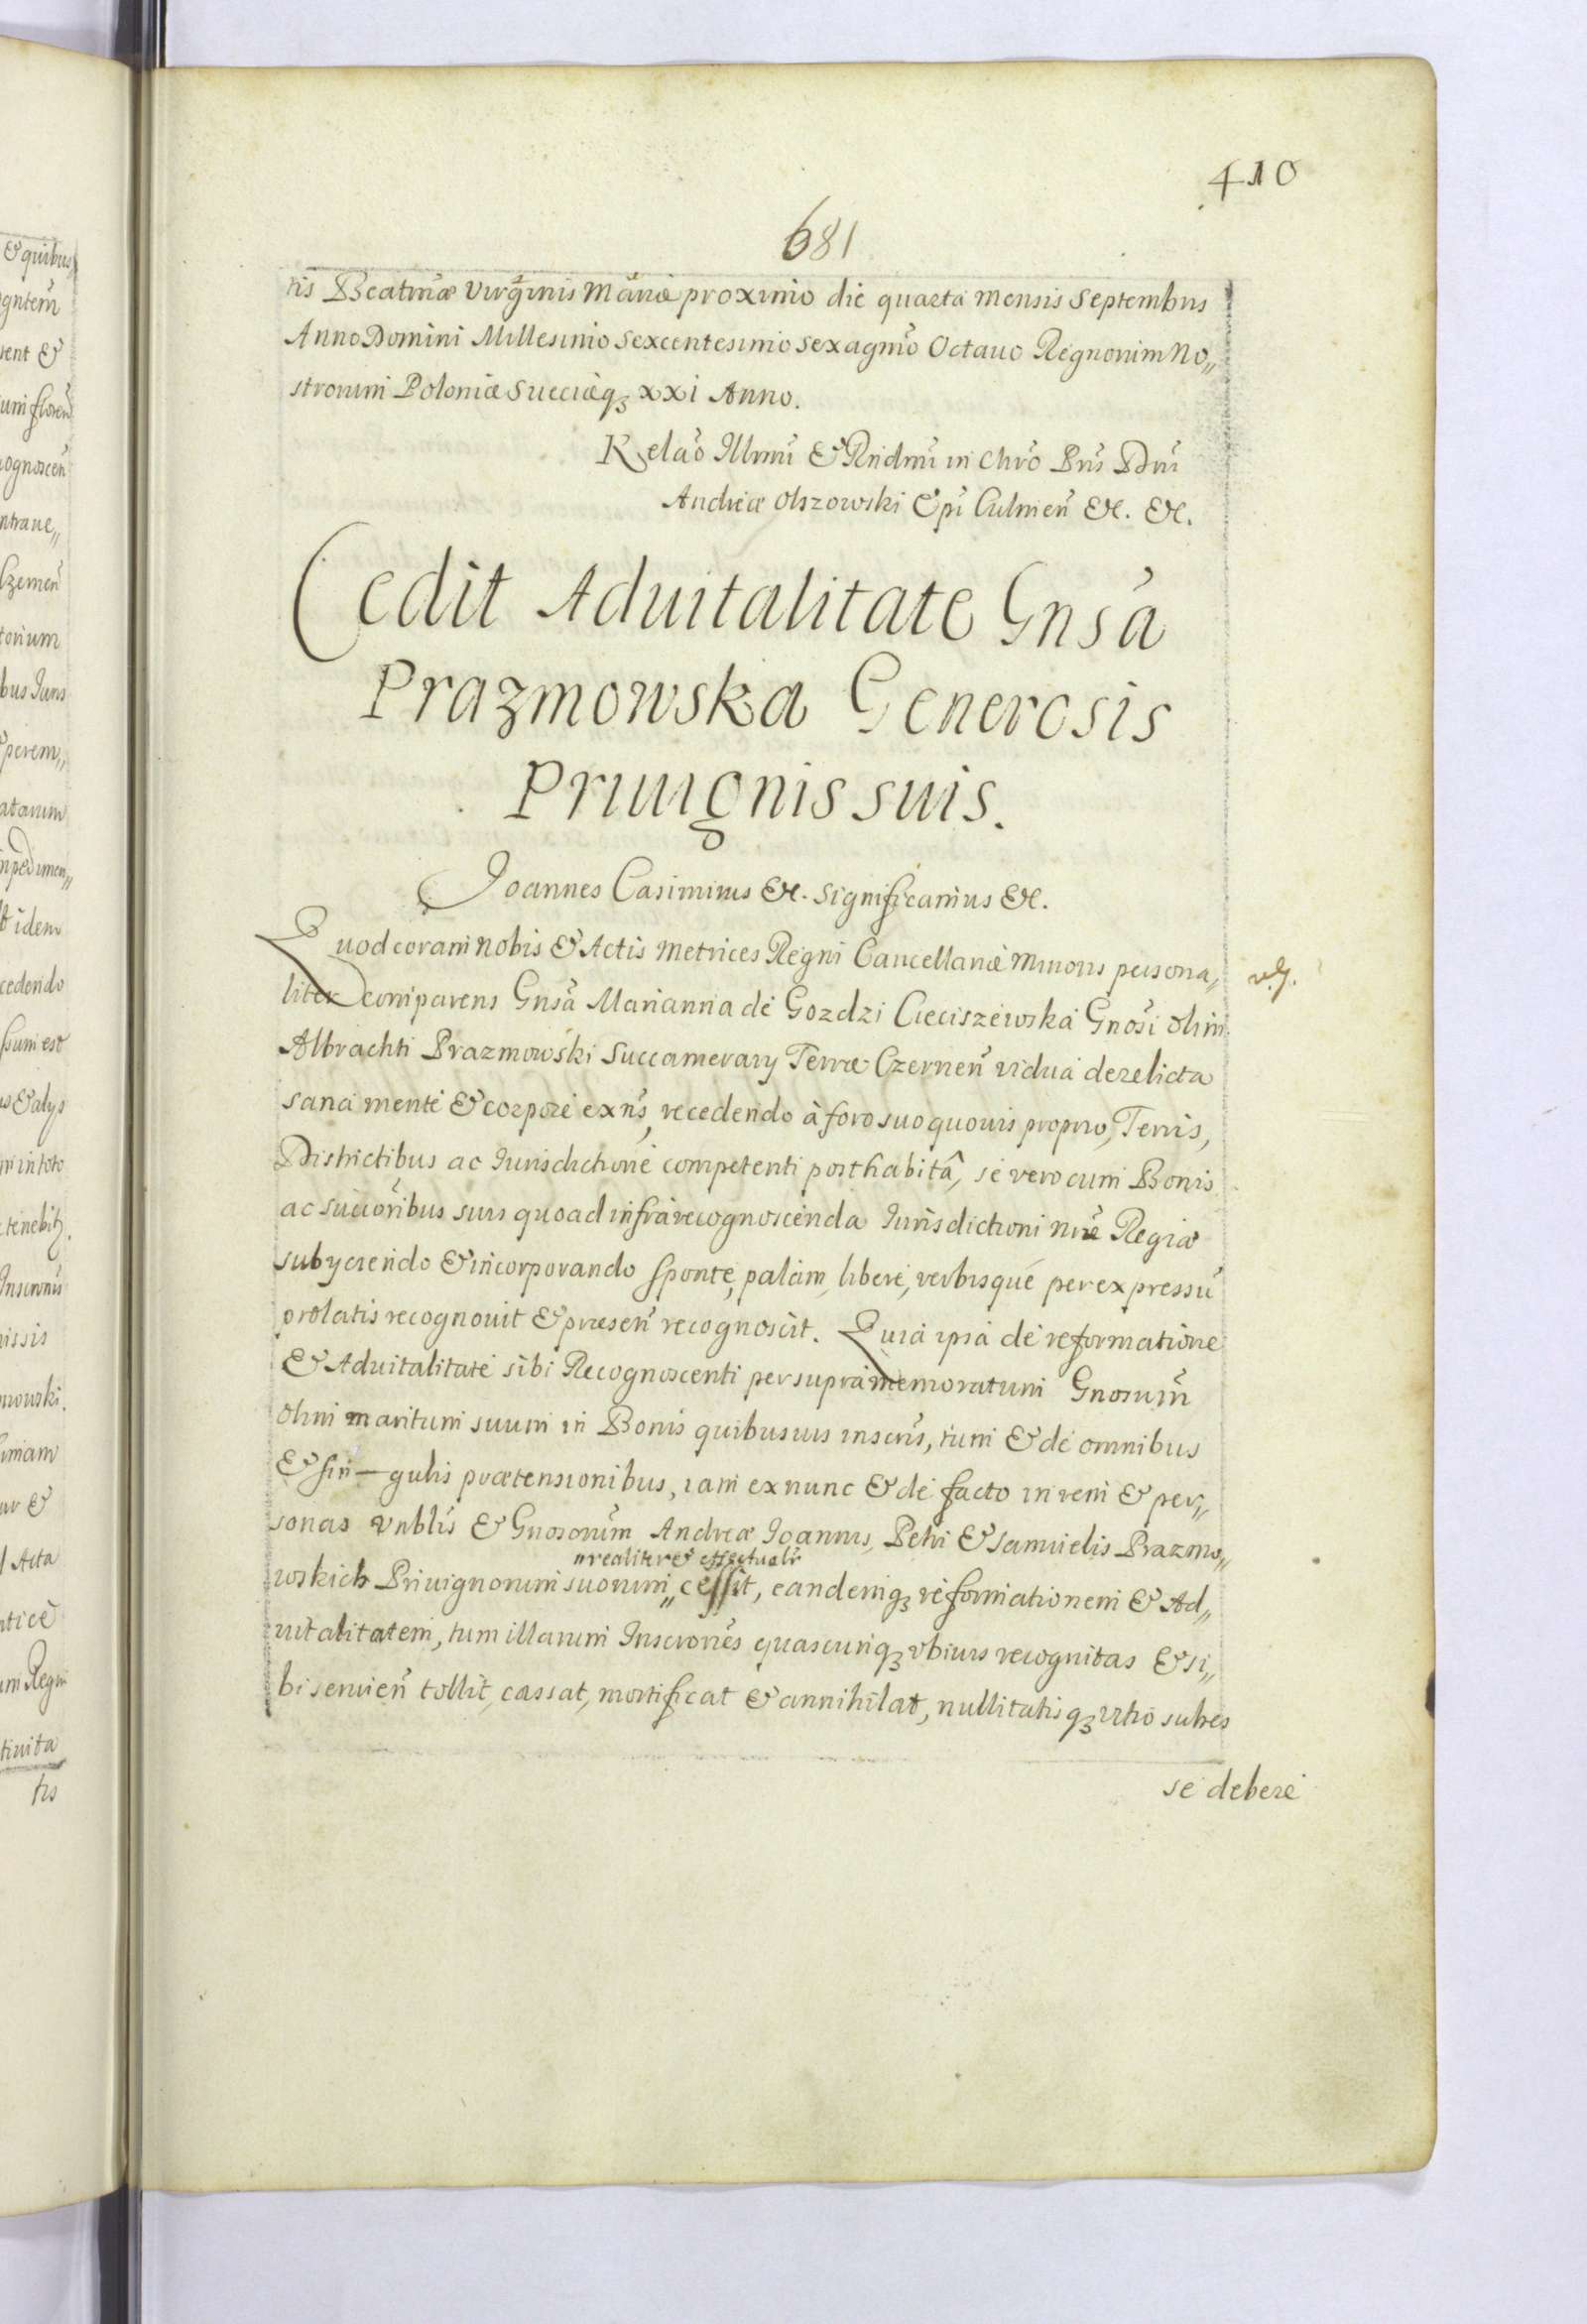 410
681
tis Beatmæ Virginis Mariæ proximo die quarta Mensis Septembris
Anno Domini Millesimo sexcentesimo sexagmo Octauo Regnorum No„
strorum Poloniæ Sueciæq₃ xxi Anno.
Relao Illmu & Rndmu in Chro Pris Dni
Andreæ Olszowski Epi Culmen &c. &c.
Cedit Aduitalitate Gnsa
Prazmowska Generosis
Priuignis suis.
Joannes Casimirus &c. Significamus &c.
Quod coram nobis & Actis Metrices Regni Cancellariæ Minoris persona„
liter comparens Gnsa Marianna de Gozdzi Cieciszewska Gnosi olim
Albrachti Prazmowski Succamerarij Terræ Czernen vidua derelicta
sana mente & corpore exns, recedendo à foro suo quouis proprio, Terris,
Districtibus ac Jurisdictione competenti posthabitâ, se vero cum Bonis
ac sucoribus suis quoad infrarecognoscenda Jurisdictioni nræ Regiæ
subyciendo & incorporando sponte, palam, libere, verbisque per expressu
prolatis recognouit & præsen recognoscit. Quia ipsa de reformatione
& Aduitalitate sibi Recognoscenti per supramemoratum Gnosum
olim maritum suum in Bonis quibusuis inscris, tum & de omnibus
& sin—gulis prætensionibus, iam ex nunc & de facto in rem & per„
sonas Vnblis & Gnosorum Andreæ Joannis, Petri & Samuelis Prazmo„
„realiter & effectualr
wskich Priuignorum suorum „ cessit, eandemq₃ reformationem & Ad„
uitalitatem, tum illarum Inscrones quascunq₃ vbiuis recognitas & si„
bi seruien tollit, cassat, mortificat & annihilat, nullitatisq₃ vitio subes
se debere